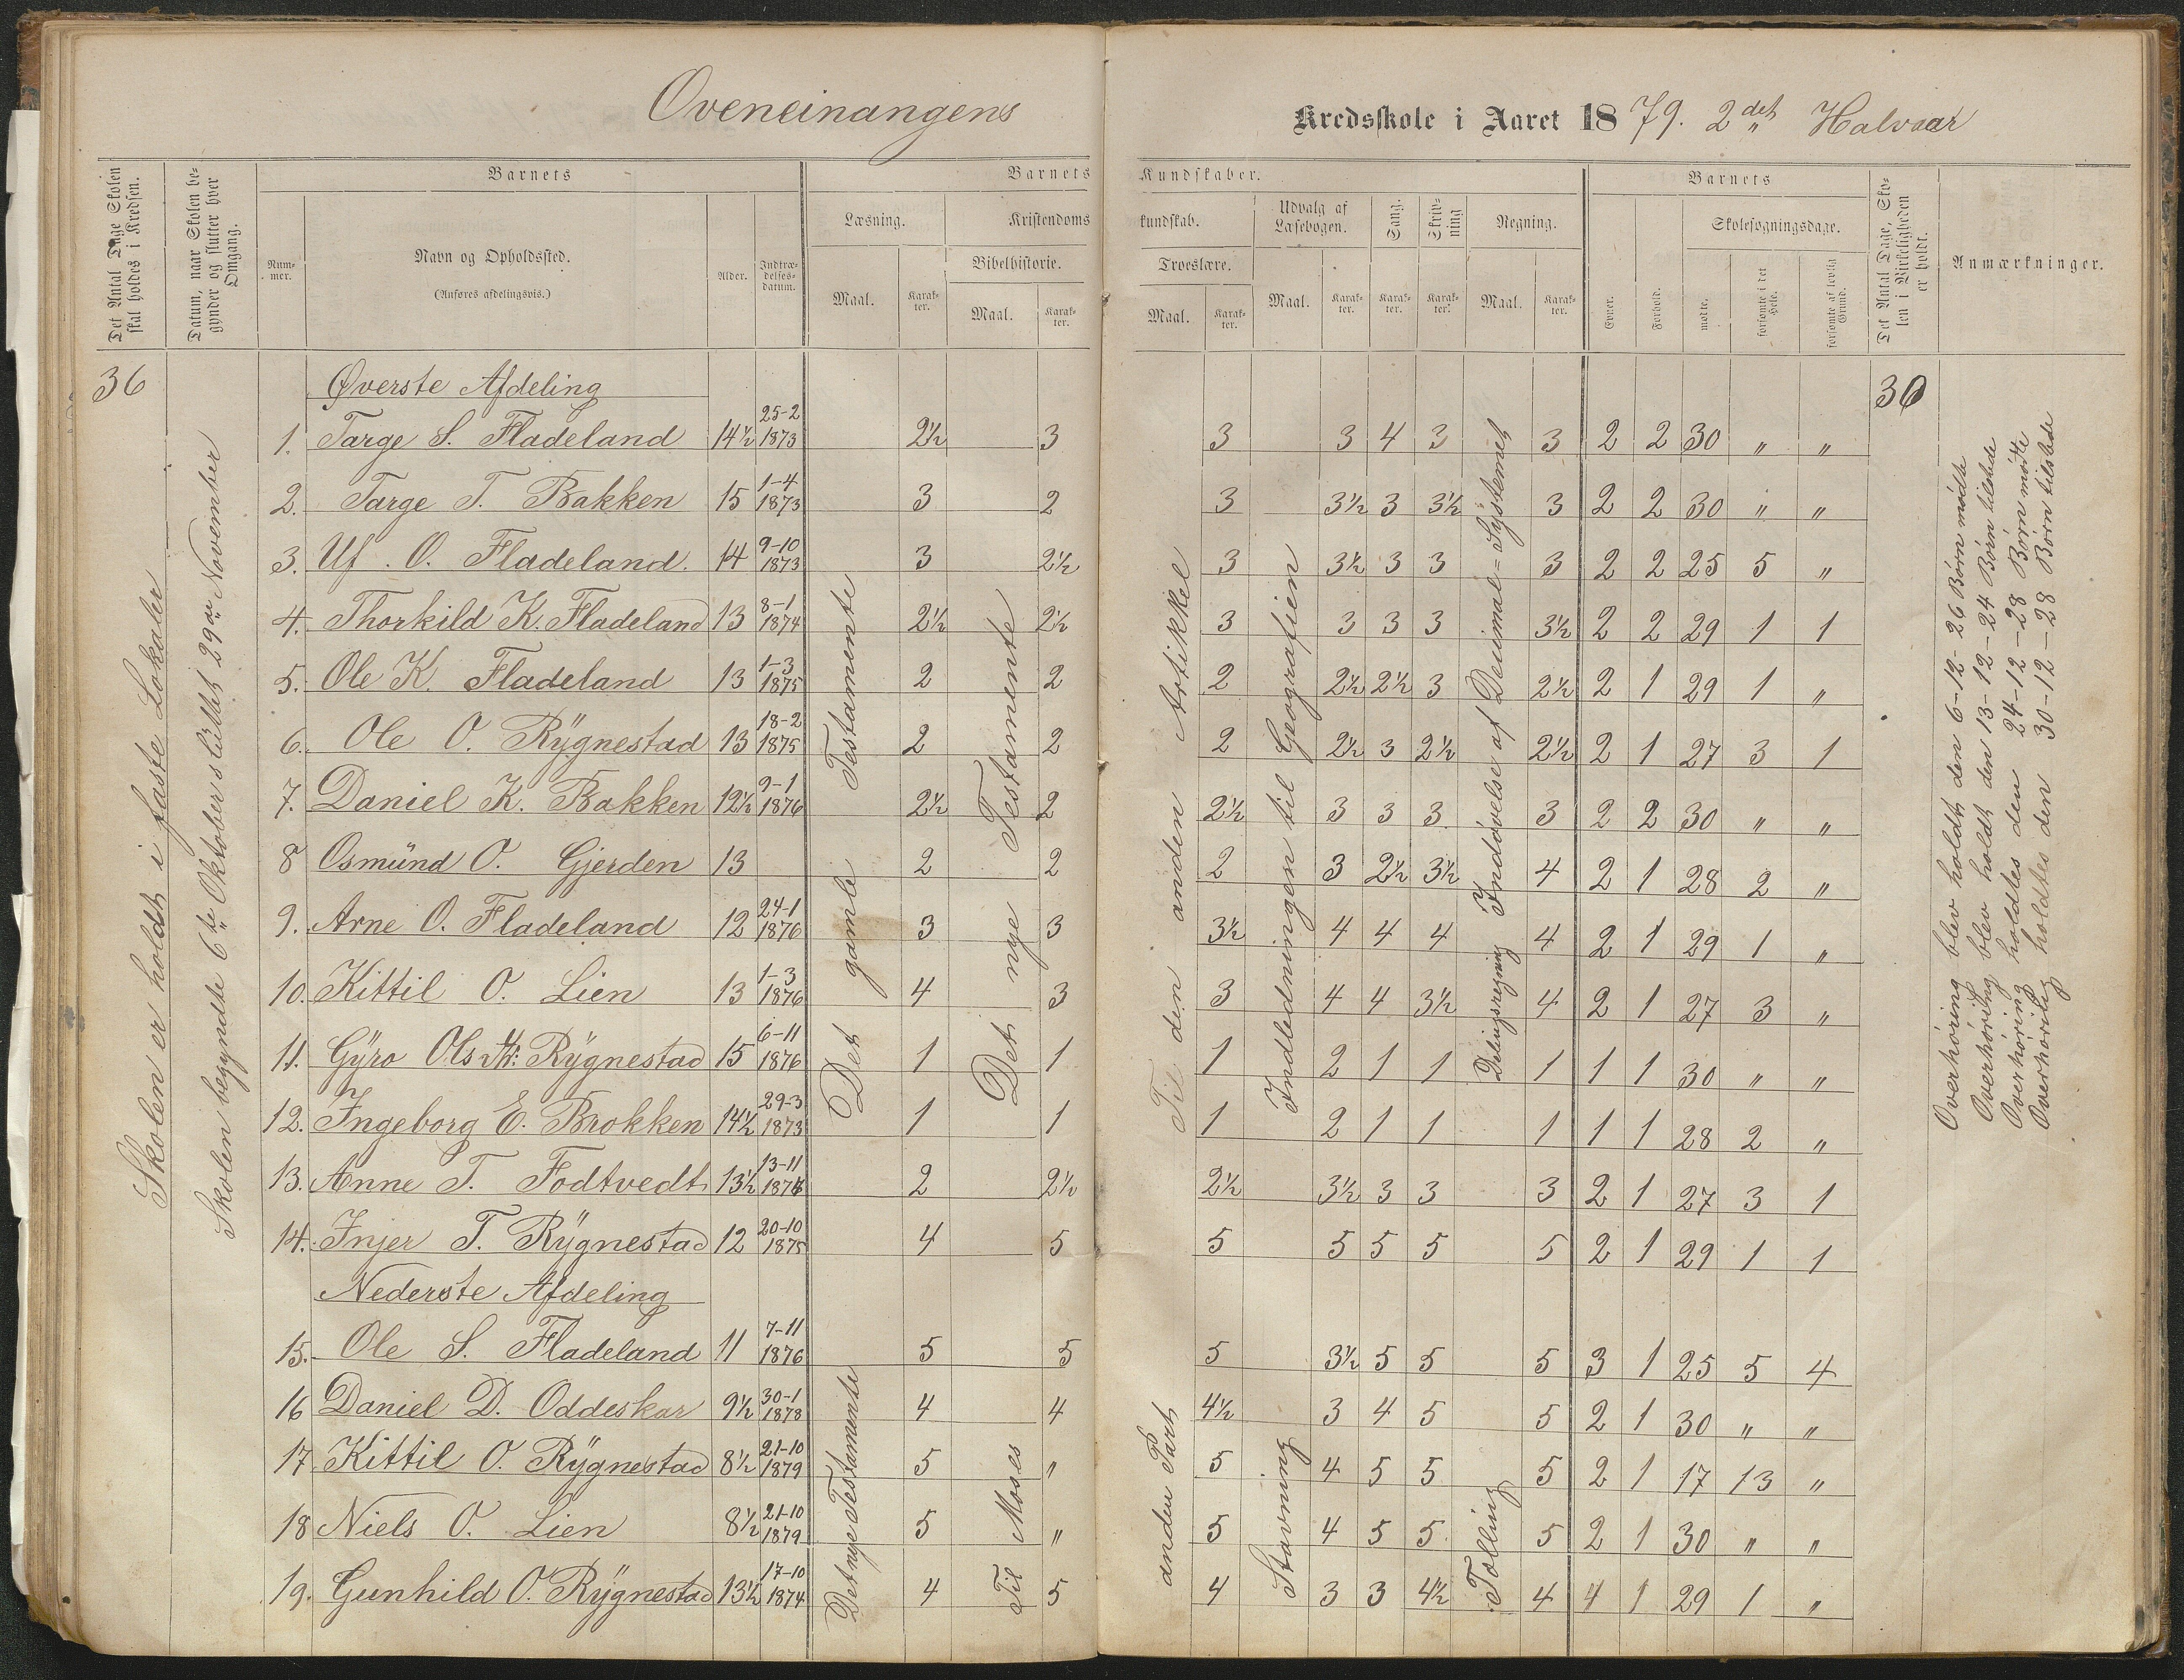 Oveneinangens
Kredsskole i Aaret 1879. 2det Halvaar
Det Antal Dage Skolen skal holdes i Kredsen.
Datum, naar Skolen begynder og slutter hver Omgang.
Barnets
Barnets Kundskaber.
Barnets
Det Antal Dage, Skolen i Virkeligheden er holdt.
Anmærkninger.
Nummer.
Navn og Opholdssted.
(Anføres afdelingsvis.)
Alder.
Indtrædelsesdatum.
Læsning.
Kristendomskundskab.
Udvalg af Læsebogen.
Sang.
Skrivning
Regning.
Skolesøgningsdage.
Bibelhistorie.
Troeslære.
Maal. Karakter. Maal. Karakter. Maal. Karakter. Maal. Karakter. Karakter. Karakter. Maal. Karakter.
Evner. Forhold. mødte. forsømte i det Hele. forsømte af lovlig Grund.
36
Skolen er holdt i faste Lokaler
Skolen begyndte 6te Oktober sluttet 29de November
Øverste Afdeling
30
1. Targe S. Fladeland 14½ 25-2 1873 2½ 3 3 3 4 3 3 2 2 30 " "
2. Targe T. Bakken 15 1-4 1873 3 2 3 3½ 3 3½ 3 2 2 30 " "
3. Uf. O. Fladeland. 14 9-10 1873 3 2½ 3 3½ 3 3 3 2 2 25 5 "
4. Thorkild K. Fladeland 13 8-1 1874 2½ 2½ 3 3 3 3 3½ 2 2 29 1 1
5. Ole K. Fladeland 13 1-3 1875 2 2 2 2½ 2½ 3 2½ 2 1 29 1 "
6. Ole O. Rygnestad 13 18-2 1875 2 2 2 2½ 3 2½ 2½ 2 1 27 3 1
7. Daniel K. Bakken 12½ 9-1 1876 2½ 2 2½ 3 3 3 3 2 2 30 " "
8 Osmund O. Gjerden 13 2 2 2 3 2½ 3½ 4 2 1 28 2 "
9. Arne O. Fladeland 12 24-1 1876 3 3 3½ 4 4 4 4 2 1 29 1 "
10. Kittil O. Lien 13 1-3 1876 4 3 3 4 4 3½ 4 2 1 27 3 "
11. Gyro Ols Rygnestad 15 6-11 1876 1 1 1 2 1 1 1 1 1 30 " "
12. Ingeborg E. Brokken 14½ 29-3 1873 1 1 1 2 1 1 1 1 1 28 2 "
13. Anne T. Fodtvedt 13½ 13-11 2 2½ 2½ 3½ 3 3 3 2 1 27 3 1
14. Injer T. Rygnestad 12 20-10 1875 4 5 5 5 5 5 5 2 1 29 1 1
Det gamle Testamente
Det nye Testamente
Til den anden Artikkel
Indledningen til Geografien
Delingsregning Indøvelse af Decimal=Systemet
Nederste Afdeling
15. Ole S. Fladeland 11 7-11 1876 5 5 5 3½ 5 5 5 3 1 25 5 4
16 Daniel D. Oddeskar 9½ 30-1 1878 4 4 4½ 3 4 5 5 2 1 30 " "
17. Kittil O. Rygnestad 8½ 21-10 1879 5 " 5 4 5 5 5 2 1 17 13 "
18 Niels O. Lien 8½ 21-10 1879 5 " 5 4 5 5 5 2 1 30 " "
19. Gunhild O. Rygnestad 13½ 17-10 1874 4 5 4 3 3 4½ 4 4 1 29 1 "
Det nye Testamente
Til Moses
anden Part
Stavning
Tælling
Overhøring blev holdt den 6-12- 26 Børn mødte
Overhøring blev holdt den 13-12- 24 Børn tilstede
Overhøring holdtes den 24-12- 28 Børn mødte
Overhøring holdtes den 30-12- 28 Børn tilstede